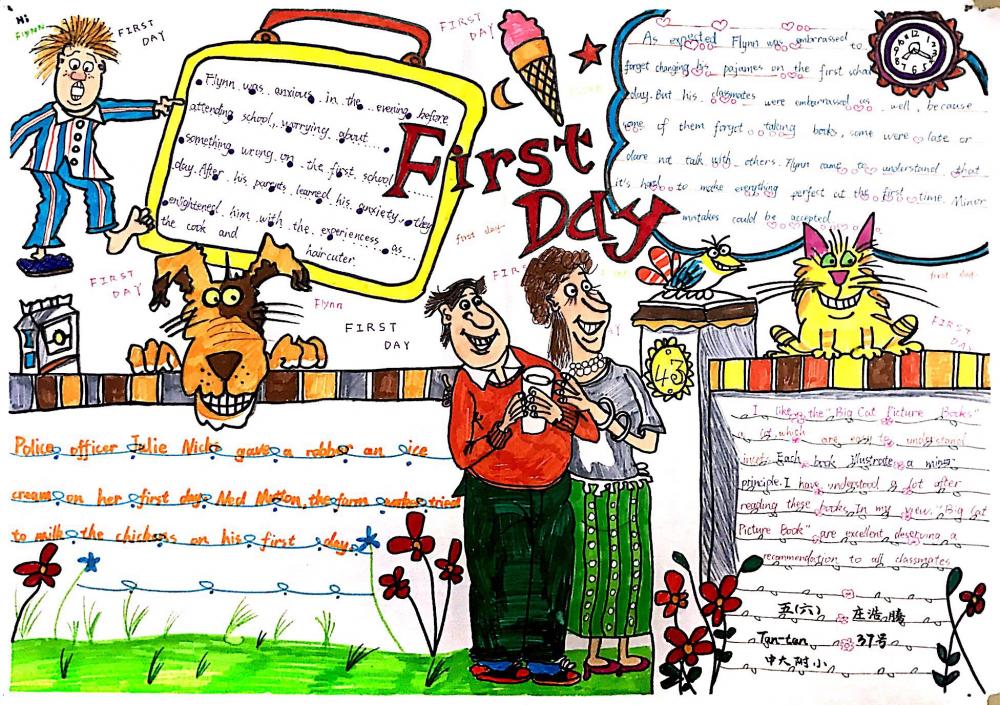 Hi
Flynn
FIRST
DAY
Flynn was anxious in the evening before
attending school, worrying about
something wrong on the first school
day. After his parents learned his anxiety, they
enlightened him with the experiencess as
the cook and
haircuter.
FIRST
DAY
First
Day
As expected Flynn was embarrassed to
forget changing his pajames on the first what
day. But his classmates were embarrassed as well, because
some of them forget taking books, some were late or
dare not talk with others. Flynn came to understand that
it's hard to make everything perfect at the first time. Minor
mistakes could be accepted
first day
FIRST
DAY
Flynn
FIRST
DAY
first day
FIRST
DAY
43
Police officer Julie Nicks gave a robber an ice
cream on her first day. Ned Mutton, the farm worker tried
to milk the chickens on his first day.
I like the "Big Cat Picture Books"
a lot, which are easy to understand
Each book illustrate a minor
principle. I have understood a lot after
reading these books. In my view, "Big Cat
Picture Book" are excellent, deserving a
recommendation to all classmates
五(六) 庄浩腾
Tan-tan 37号
中大附小